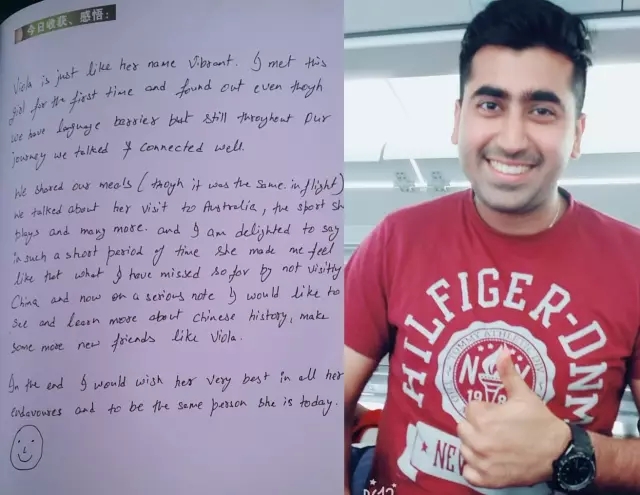 今日收获、感悟:
Viola is just like her name Vibrant. I met this
girl for the first time and found out even thogh
we have language barrier but still throughout our
journey we talked & connected well.
We shared our meals (thogh it was the same inflight)
we talked about her visit to Australia, the sport she
plays and many more. and I am delighted to say
in such a short period of time she made me feel
like that what I have missed so far by not visiting
China and now on a serious note I would like to
see and learn more about Chinese history, make
some more new friends like Viola.
In the end I would wish her very best in all her
endavoures and to be the same person she is today.
HILFIGER-DNM
NY
NEW